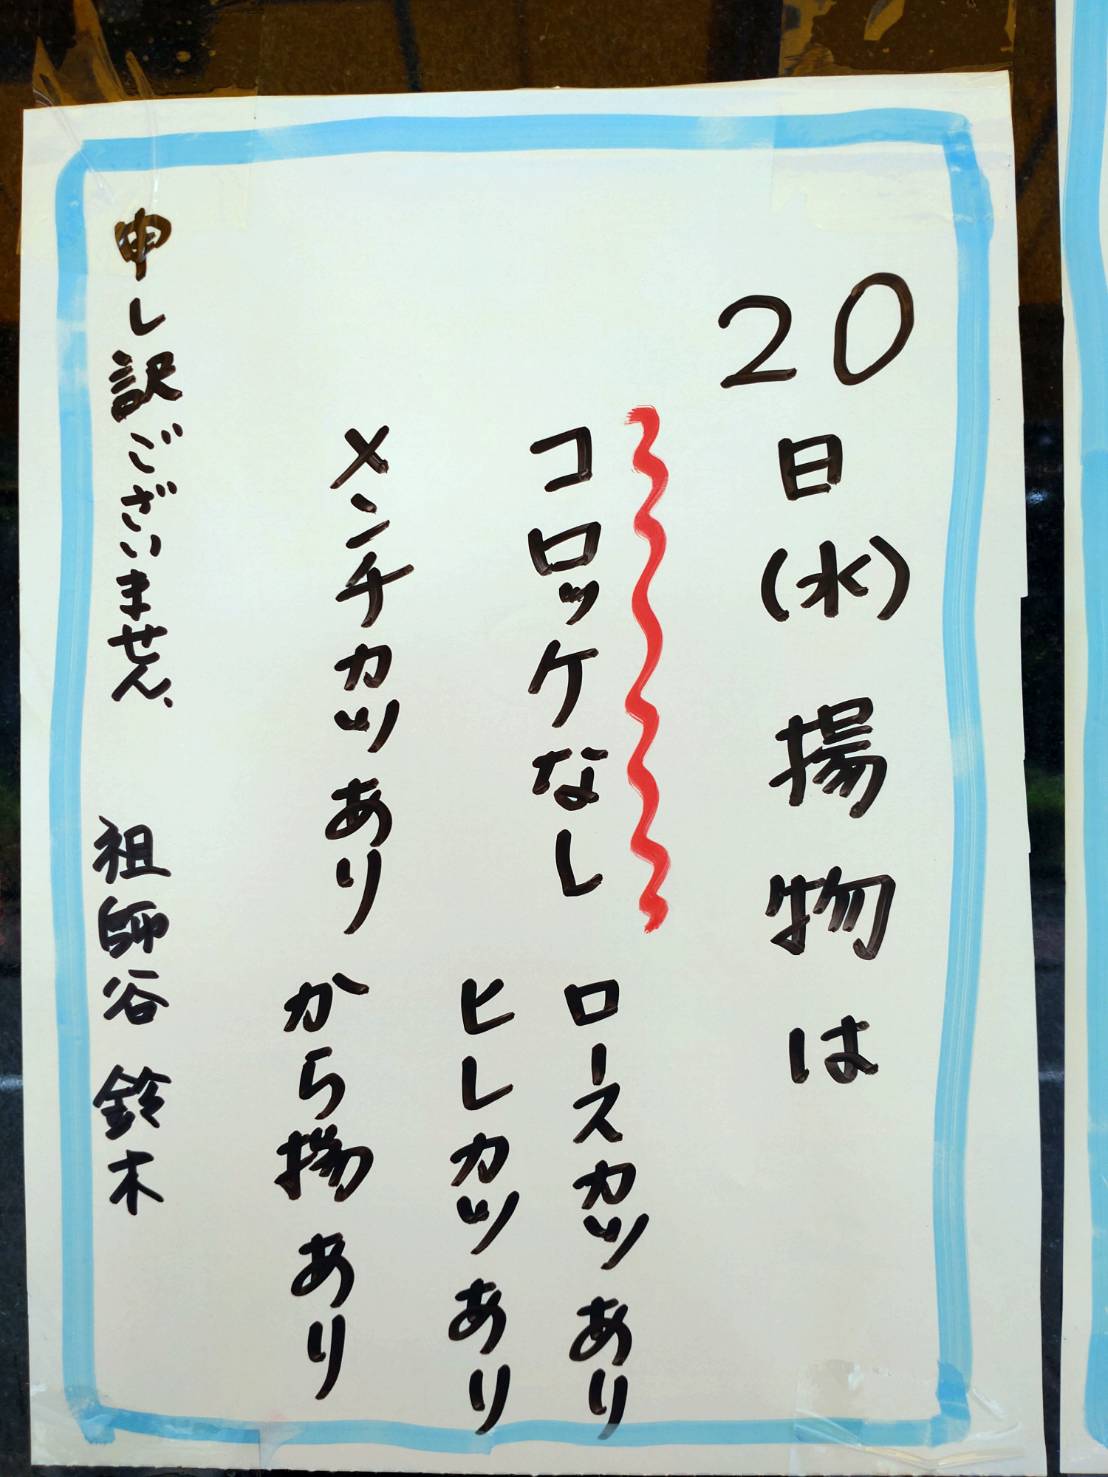 20日(水)揚物は
コロッケなし
ロースカツあり
ヒレカツあり
メンチカツあり
から揚あり
申し訳ございません、
祖師谷 鈴木